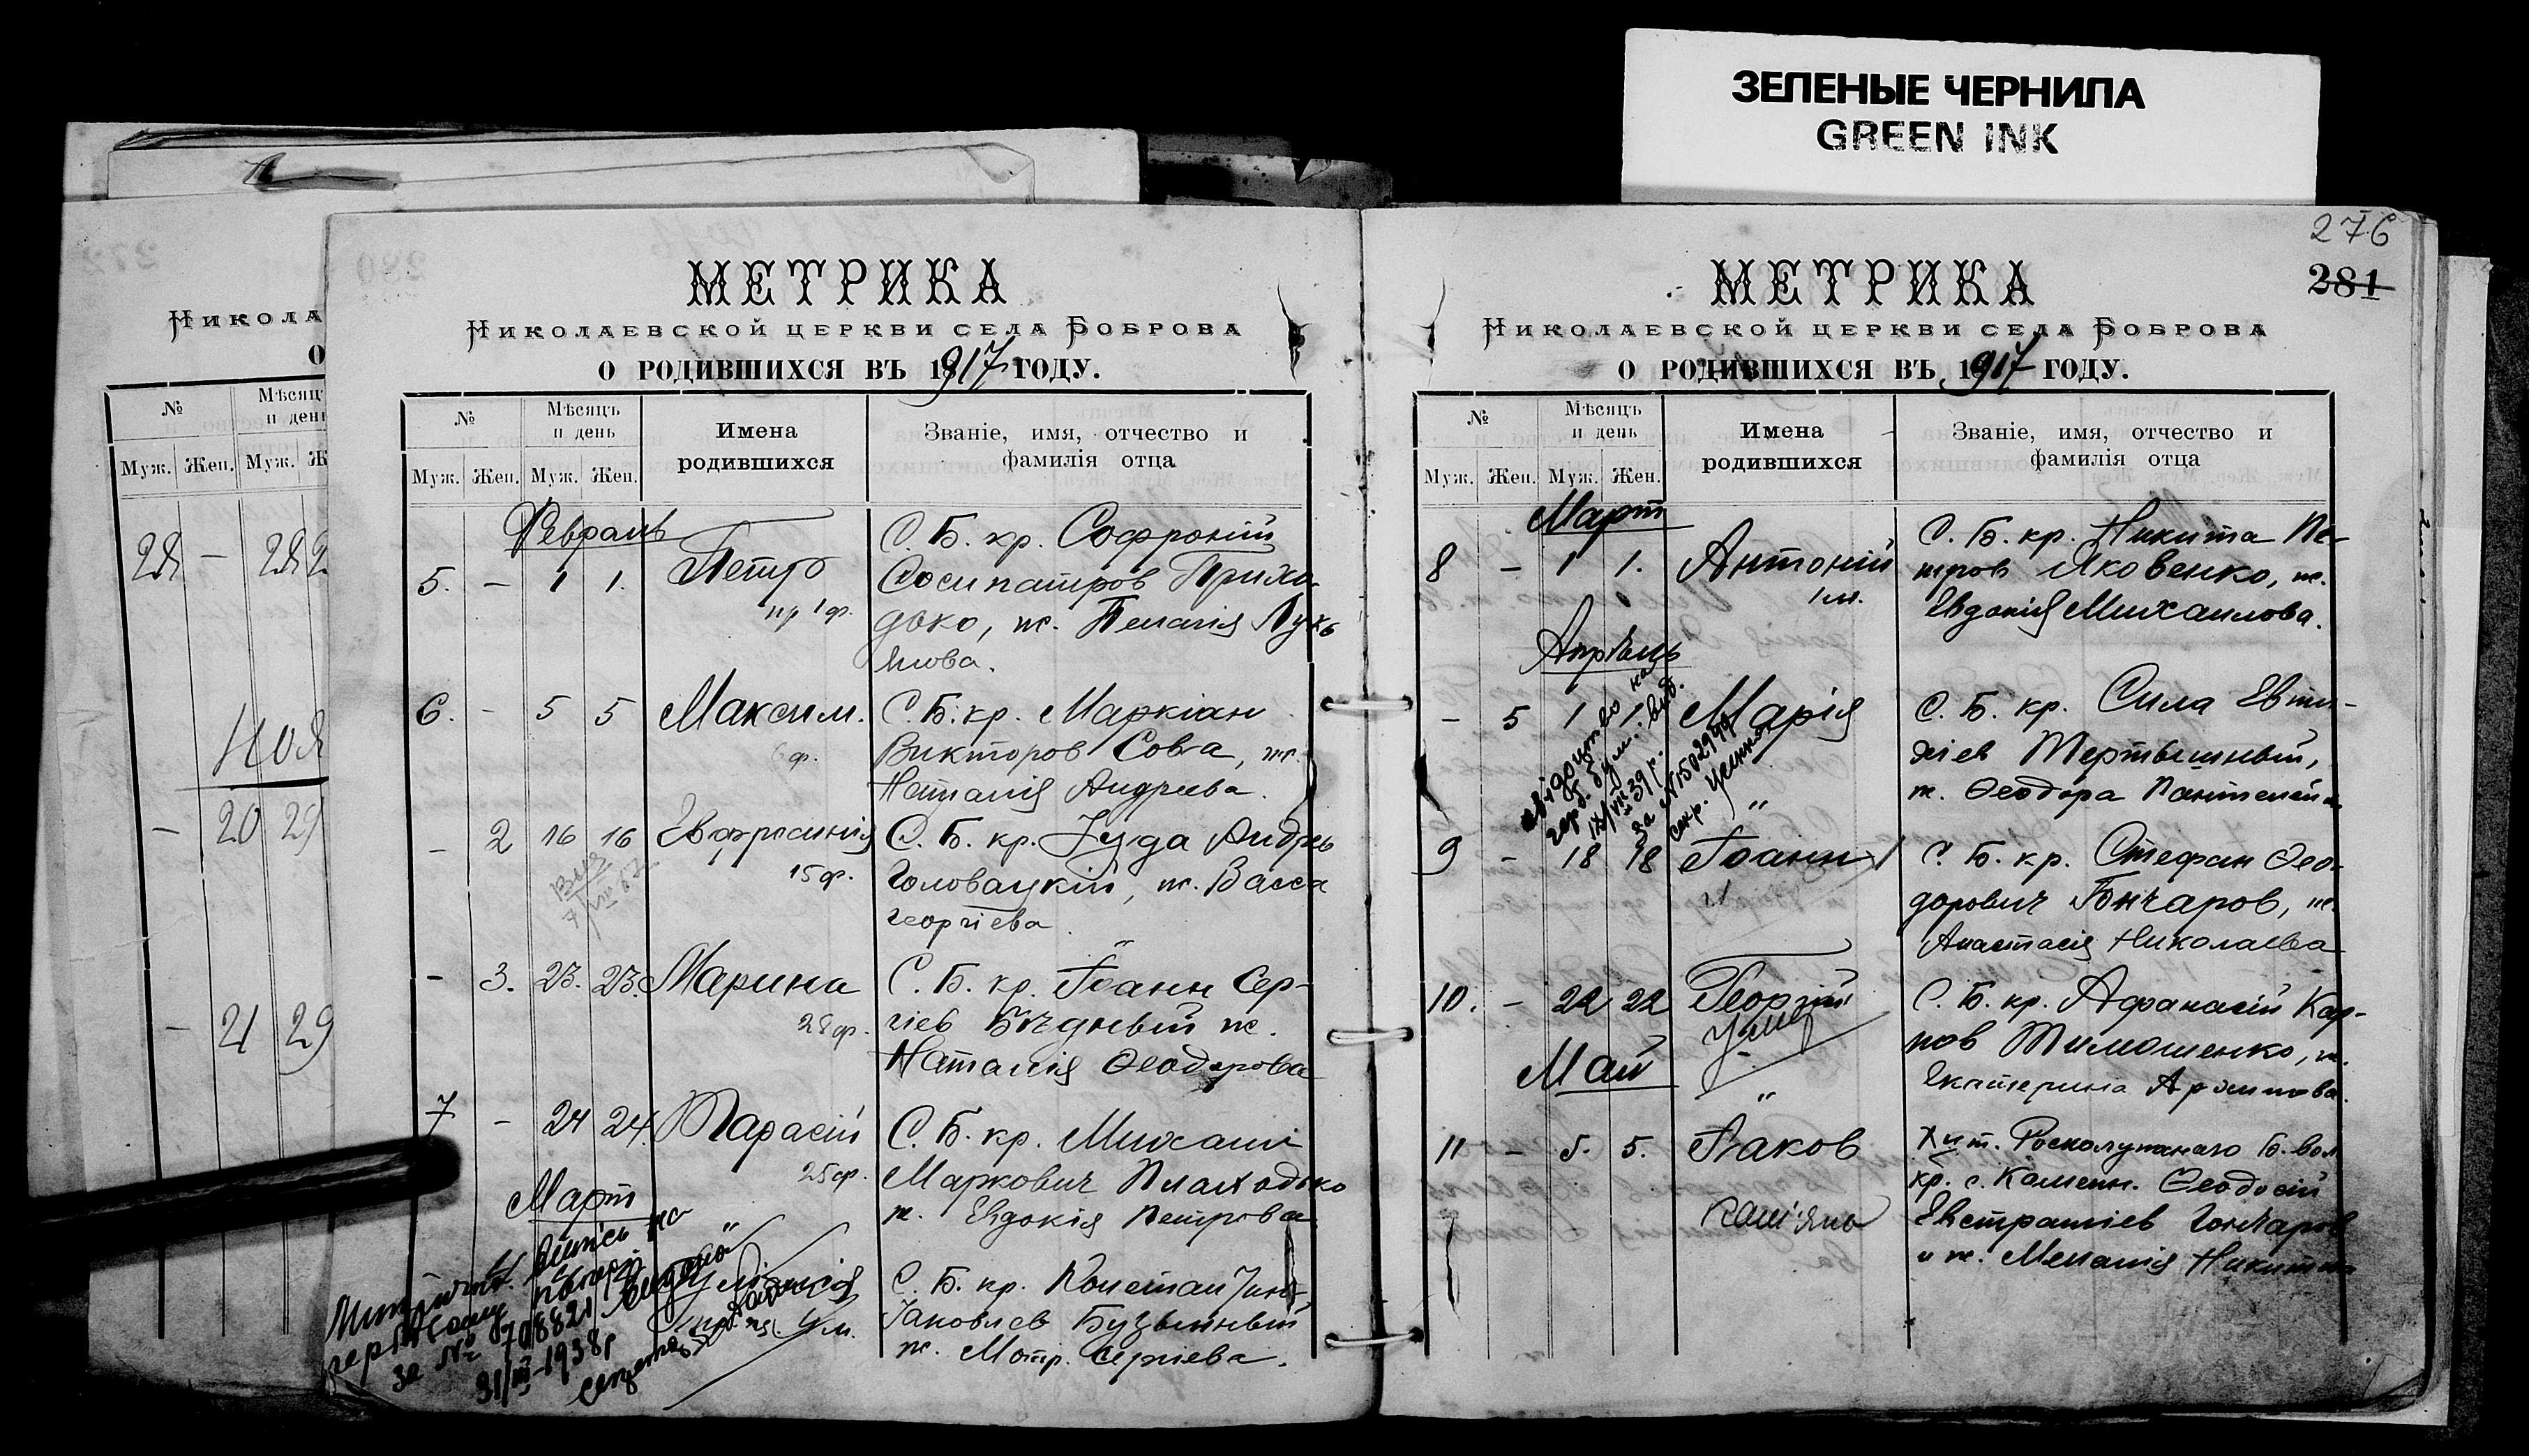 ЗЕЛЕНЫЕ ЧЕРНИЛА
GREEN INK
НИКОЛА
О
№
Мѣсяц
и ден
Муж. Жен. Муж. Ж
28 –
Ноя
– 20 29
– 21 29
МЕТРИКА
НИКОЛАЕВСКОЙ ЦЕРКВИ СЕЛА БОБРОВА
О РОДИВШИХСЯ ВЪ 1917 ГОДУ.
№
Мѣсяцъ и день
Имена родившихся
Званіе, имя, отчество и фамилія отца
Муж. Жен. Муж. Жен.
Февраль
5. – 1 1. Петръ С. Б. кр. Софроній
1 ф. Досипатров Прихо-
дько, ж. Пелагія Лукь
янова.
6. – 5 5 Максим. С. Б. кр. Маркіан
6 ф. Викторов Сова, ж.
Наталія Андреева.
– 2 16 16 Евфросинія С. Б. кр. Іуда Андрѣ
15 ф. Головацкій, ж. Васса
Георгіева.
– 3. 23. 23. Марина С. Б. кр. Іоанн Сер-
28 ф. гіев Бѣдный ж.
Наталія Ѳеодорова
7 – 24 24. Тарасій С. Б. кр. Михаил
25 ф. Маркович Плаходько
ж. Евдокія Петрова
Март
С. Б. кр. Констан
4 м. Іаковлев Бузынный
ж. Мотр. Сергіева.
за № 708821
31/III-1938 р
276
281
МЕТРИКА
НИКОЛАЕВСКОЙ ЦЕРКВИ СЕЛА БОБРОВА
О РОДИВШИХСЯ ВЪ 1917 ГОДУ.
№
Мѣсяцъ и день
Имена родившихся
Званіе, имя, отчество и фамилія отца
Муж. Жен. Муж. Жен.
Март
8 – 1 1. Антоній С. Б. кр. Никита Пе-
1 м. тров Яковенко, ж.
Евдокія Михаилова.
Апрѣль
– 5 1 1. Марія С. Б. кр. Сила Евти-
хіев Мертвышный,
ж. Ѳеодора Пантелейм
9 – 18 18 Іоанн С. Б. кр. Стефан Ѳео-
дорович Гончаров, ж.
Анастасія Николаева
10. – 22 22 Георгій С. Б. кр. Афанасій Кар-
Умер пов Тимошенко, ж.
Екатерина Архипова.
Май
11 – 5. 5. Іаков Хут. Росколупанаго Б. вол
кр. с. Каменн. Ѳеодосій
Евстратіев Гончаров
и ж. Меланія Никитина